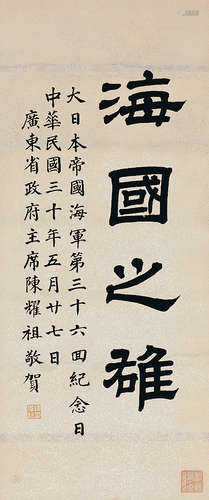 海國之雄
大日本帝國海軍第三十六回紀念日
中華民國三十年五月廿七日
廣東省政府主席陳耀祖敬賀